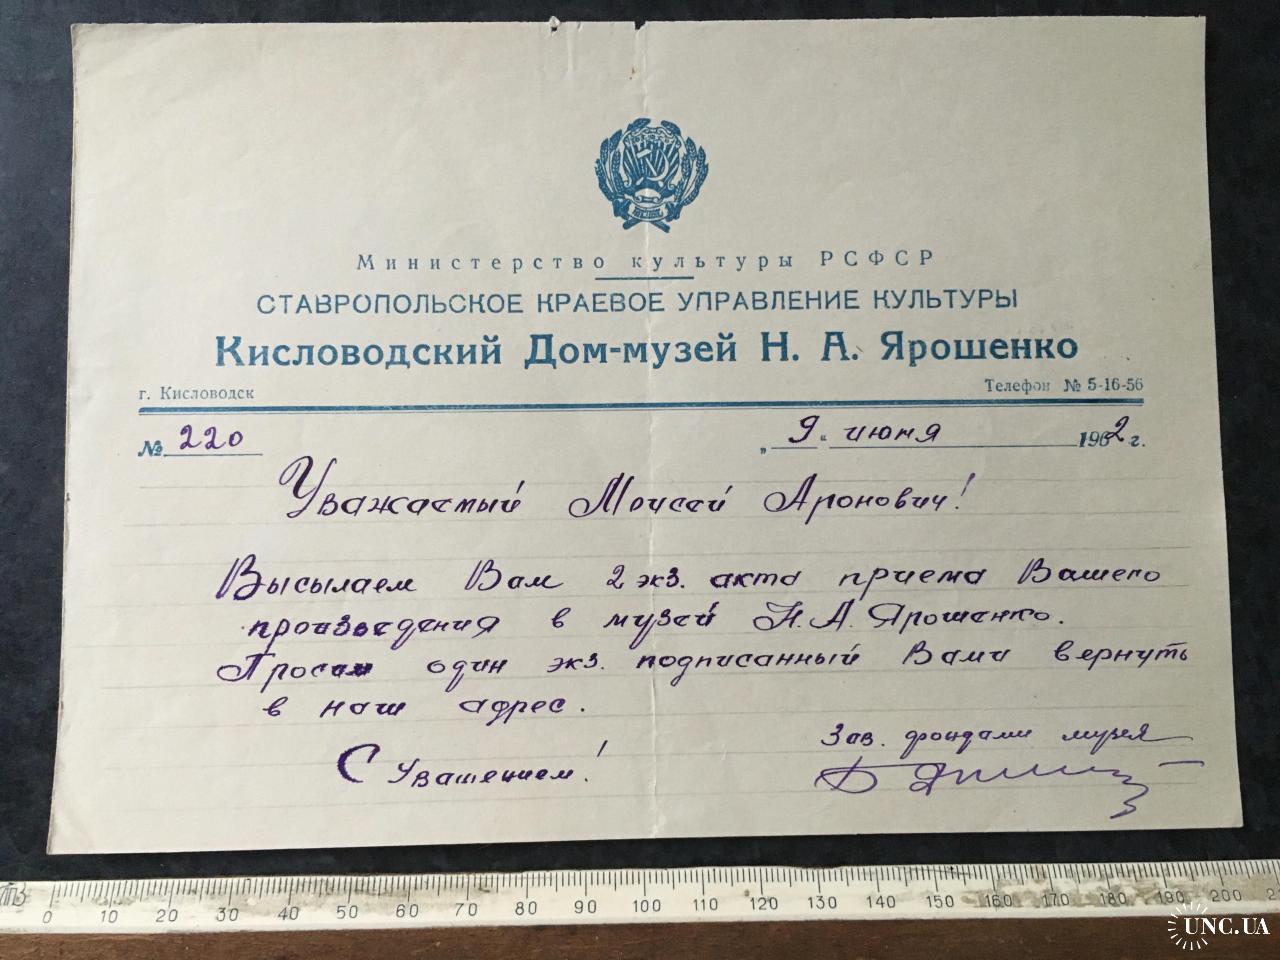 Министерство культуры РСФСР
СТАВРОПОЛЬСКОЕ КРАЕВОЕ УПРАВЛЕНИЕ КУЛЬТУРЫ
Кисловодский Дом-музей Н. А. Ярошенко
г. Кисловодск Телефон № 5-16-56
№ 220 „ 9 “ июня 1962 г.
Уважаемый Моисей Аронович!
Высылаем Вам 2 экз. акта приема Вашего
произведения в музей Н. А. Ярошенко.
Просим один экз. подписанный Вами вернуть
в наш адрес.
С уважением!
Зав. фондами музея
0 10 20 30 40 50 60 70 80 90 100 110 120 130 140 150 160 170 180 190 200
UNC.UA